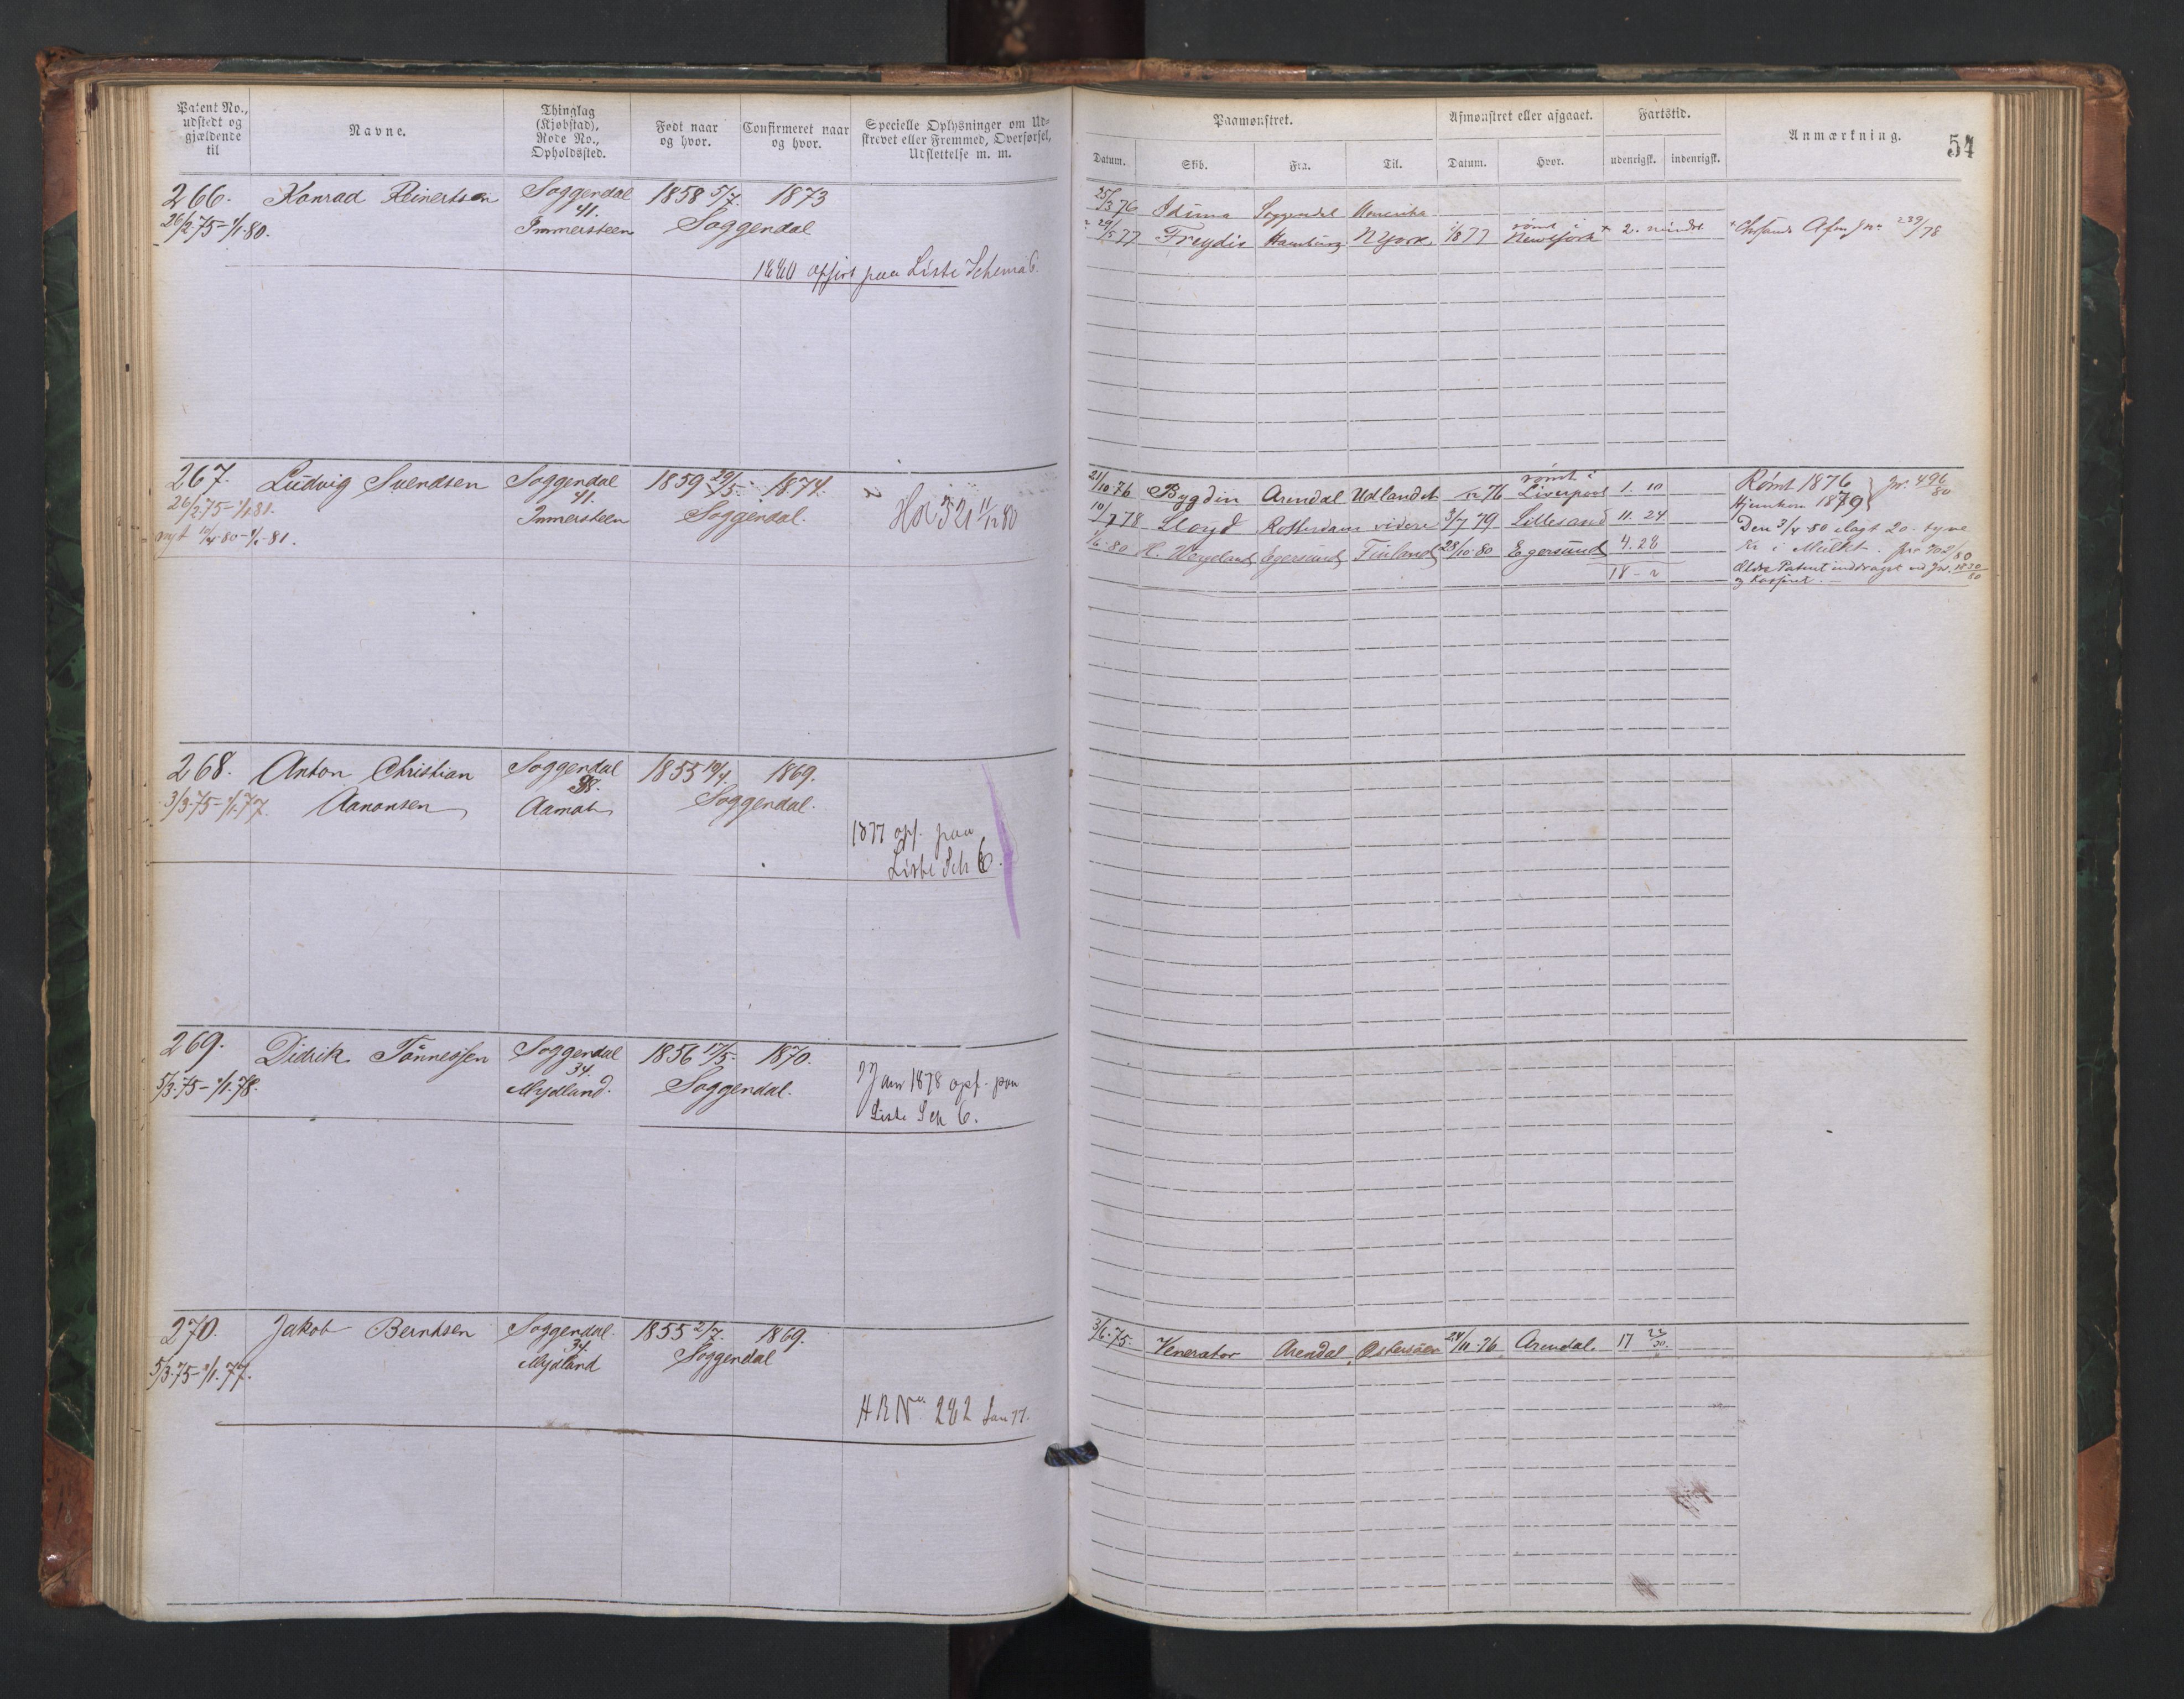 Patent No.,
udstedt og
gjældende
til
Navne.
Thinglag
(Kjøbstad),
Rode No.,
Opholdssted.
Født naar
og hvor.
Confirmeret naar
og hvor.
Specielle Oplysninger om Ud-
skrevet eller Fremmed, Overførsel,
Udslettelse m. m.
266. Konrad Reinertsen Soggendal 1858 5/7. 1873
41.
26/2.75-1/1.80. Immersteen Soggendal
1880 opført paa Liste Schema 6.
267. Ludvig Svendsen Soggendal 1859 29/5. 1874.
41.
26/2.75-1/1.81. Immersteen Soggendal.
nyt 10/4.80-1/1-81.
HR 321 11/12 80
268. Anton Christian Soggendal 1855 19/4. 1869.
38.
3/3.75-1/1.77. Aanonsen Aamodt Soggendal.
1877 opf. paa
Liste Sch 6.
269. Didrik Tönnessen Soggendal 1856 17/5. 1870.
34.
5/3.75-1/1.78. Mydland. Soggendal.
Jan 1878 opf. paa
Liste Sch 6.
270. Jakob Berntsen Soggendal. 1855 2/7. 1869.
34.
5/3.75-1/1.77. Mydland Soggendal
HR No 282 Jan 77.
Paamønstret.
Afmønstret eller afgaaet.
Fartstid.
Anmærkning.
54
Datum. Skib. Fra. Til. Datum. Hvor. udenrigsk. indenrigsk.
25/3 76 Iduna Soggendal Amerika
29/5 77 Freydis Hamburg NYork. 1/8 77 rømt i NewYork 2. mindst. Chrsands Afm Jn. 239/78
21/10 76 Bygdin Arendal Udlandet /12 76 rømt i Liverpool 1. 10
Rømt 1876
Hjemkom 1879 } Jn. 496/80
10/7 78 Lloyd Rotterdam videre 3/7 79 Lillesand 11. 24
Den 3/4.80 ilagt 20. tyve
1/6.80 H. Wergeland Egersund Finland 28/10.80 Egersund 4.28
Kr i Mulkt. Jn 702/80
18 - 2
Ældre Patent inddraget ved Jn. 1830/80
og Kasseret.
3/6.75. Venerator Arendal Östersöen 24/11.76 Arendal. 17 22/30.